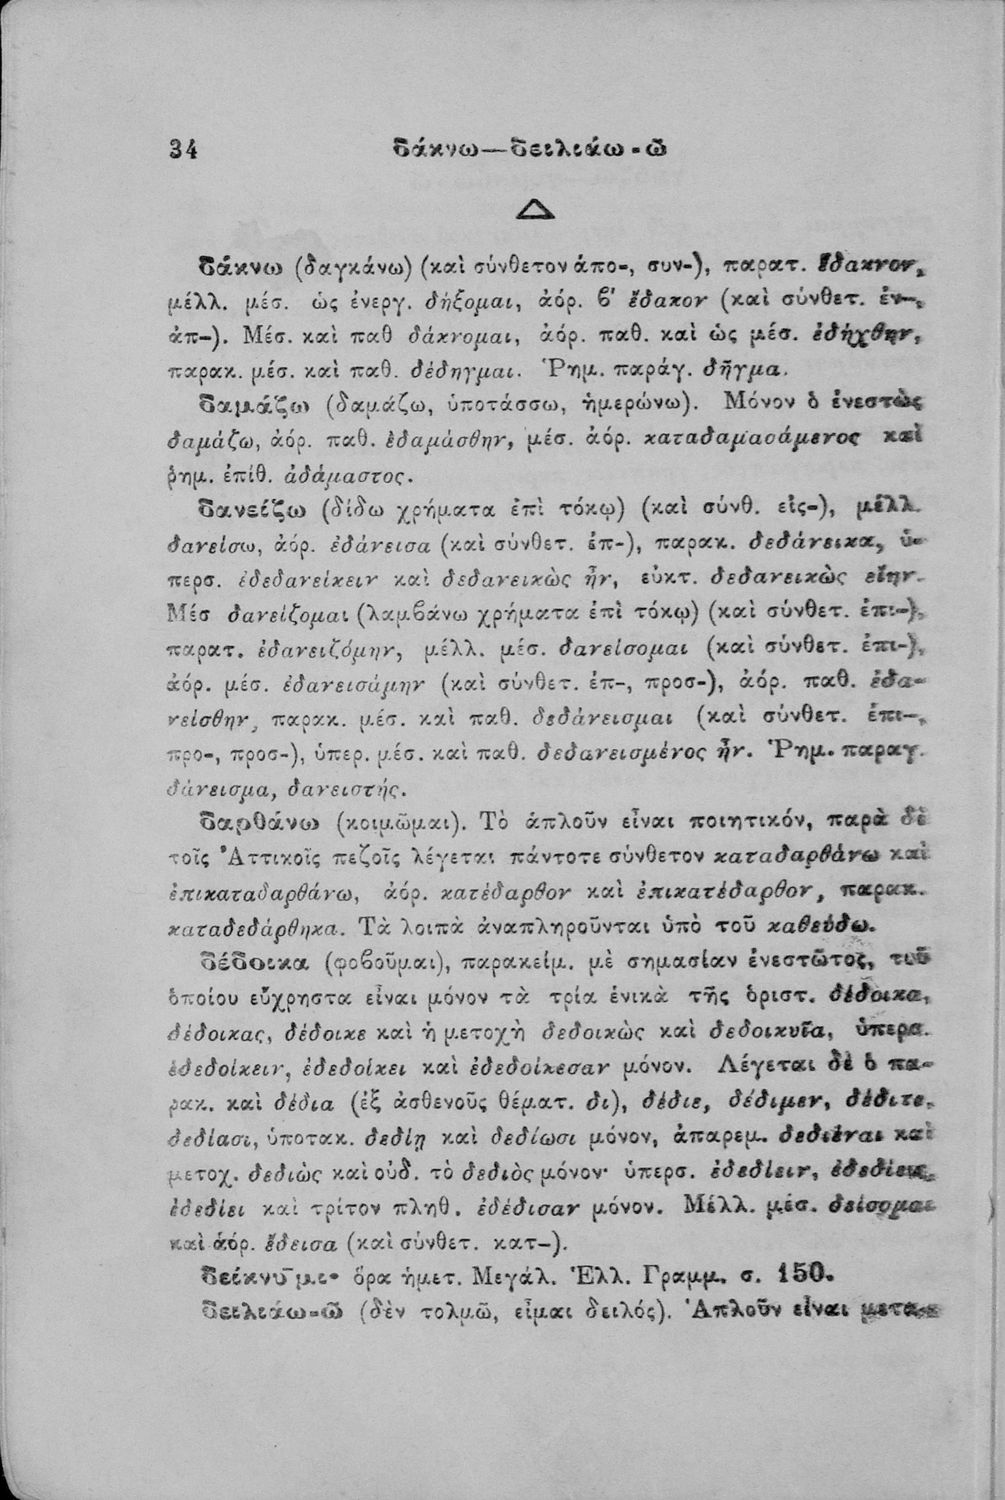 34 δάκνω—δειλιάω-ῶ
Δ
δάκνω (δαγκάνω) (καὶ σύνθετον ἀπο-, συν-), παρατ. ἔδακνον,
μέλλ. μέσ. ὡς ἐνεργ. δήξομαι, ἀόρ. β' ἔδακον (καὶ σύνθετ. ἐν-,
ἀπ-). Μέσ. καὶ παθ δάκνομαι, ἀόρ. παθ. καὶ ὡς μέσ. ἐδήχθην,
παρακ. μέσ. καὶ παθ. δέδηγμαι. Ῥημ. παράγ. δῆγμα.
δαμάζω (δαμάζω, ὑποτάσσω, ἡμερώνω). Μόνον ὁ ἐνεστὼς
δαμάζω, ἀόρ. παθ. ἐδαμάσθην, μέσ. ἀόρ. καταδαμασάμενος καὶ
ῥημ. ἐπίθ. ἀδάμαστος.
δανείζω (δίδω χρήματα ἐπὶ τόκῳ) (καὶ σύνθ. εἰς-), μέλλ.
δανείσω, ἀόρ. ἐδάνεισα (καὶ σύνθετ. ἐπ-), παρακ. δεδάνεικα, ὑ-
περσ. ἐδεδανείκειν καὶ δεδανεικὼς ἦν, εὐκτ. δεδανεικὼς εἴην.
Μέσ δανείζομαι (λαμβάνω χρήματα ἐπὶ τόκῳ) (καὶ σύνθετ. ἐπι-),
παρατ. ἐδανειζόμην, μέλλ. μέσ. δανείσομαι (καὶ σύνθετ. ἐπι-),
ἀόρ. μέσ. ἐδανεισάμην (καὶ σύνθετ. ἐπ-, προσ-), ἀόρ. παθ. ἐδα-
νείσθην, παρακ. μέσ. καὶ παθ. δεδάνεισμαι (καὶ σύνθετ. ἐπι-,
προ-, προσ-), ὑπερ. μέσ. καὶ παθ. δεδανεισμένος ἦν. Ῥημ. παραγ.
δάνεισμα, δανειστής.
δαρθάνω (κοιμῶμαι). Τὸ ἁπλοῦν εἶναι ποιητικόν, παρὰ δὲ
τοῖς Ἀττικοῖς πεζοῖς λέγεται πάντοτε σύνθετον καταδαρθάνω καὶ
ἐπικαταδαρθάνω, ἀόρ. κατέδαρθον καὶ ἐπικατέδαρθον, παρακ.
καταδεδάρθηκα. Τὰ λοιπὰ ἀναπληροῦνται ὑπὸ τοῦ καθεύδω.
δέδοικα (φοβοῦμαι), παρακείμ. μὲ σημασίαν ἐνεστῶτος, τοῦ
ὁποίου εὔχρηστα εἶναι μόνον τὰ τρία ἑνικὰ τῆς ὁριστ. δέδοικα,
δέδοικας, δέδοικε καὶ ἡ μετοχὴ δεδοικὼς καὶ δεδοικυῖα, ὑπερσ.
ἐδεδοίκειν, ἐδεδοίκει καὶ ἐδεδοίκεσαν μόνον. Λέγεται δὲ ὁ πα-
ρακ. καὶ δέδια (ἐξ ἀσθενοῦς θέματ. δι), δέδιε, δέδιμεν, δέδιτε,
δεδίασι, ὑποτακ. δεδίῃ καὶ δεδίωσι μόνον, ἀπαρεμ. δεδιέναι καὶ
μετοχ. δεδιὼς καὶ οὐδ. τὸ δεδιὸς μόνον· ὑπερσ. ἐδεδίειν, ἐδεδίεις,
ἐδεδίει καὶ τρίτον πληθ. ἐδέδισαν μόνον. Μέλλ. μέσ. δείσομαι
καὶ ἀόρ. ἔδεισα (καὶ σύνθετ. κατ-).
δείκνῡμι· ὅρα ἡμετ. Μεγάλ. Ἑλλ. Γραμμ. σ. 150.
δειλιάω-ῶ (δὲν τολμῶ, εἶμαι δειλός). Ἁπλοῦν εἶναι